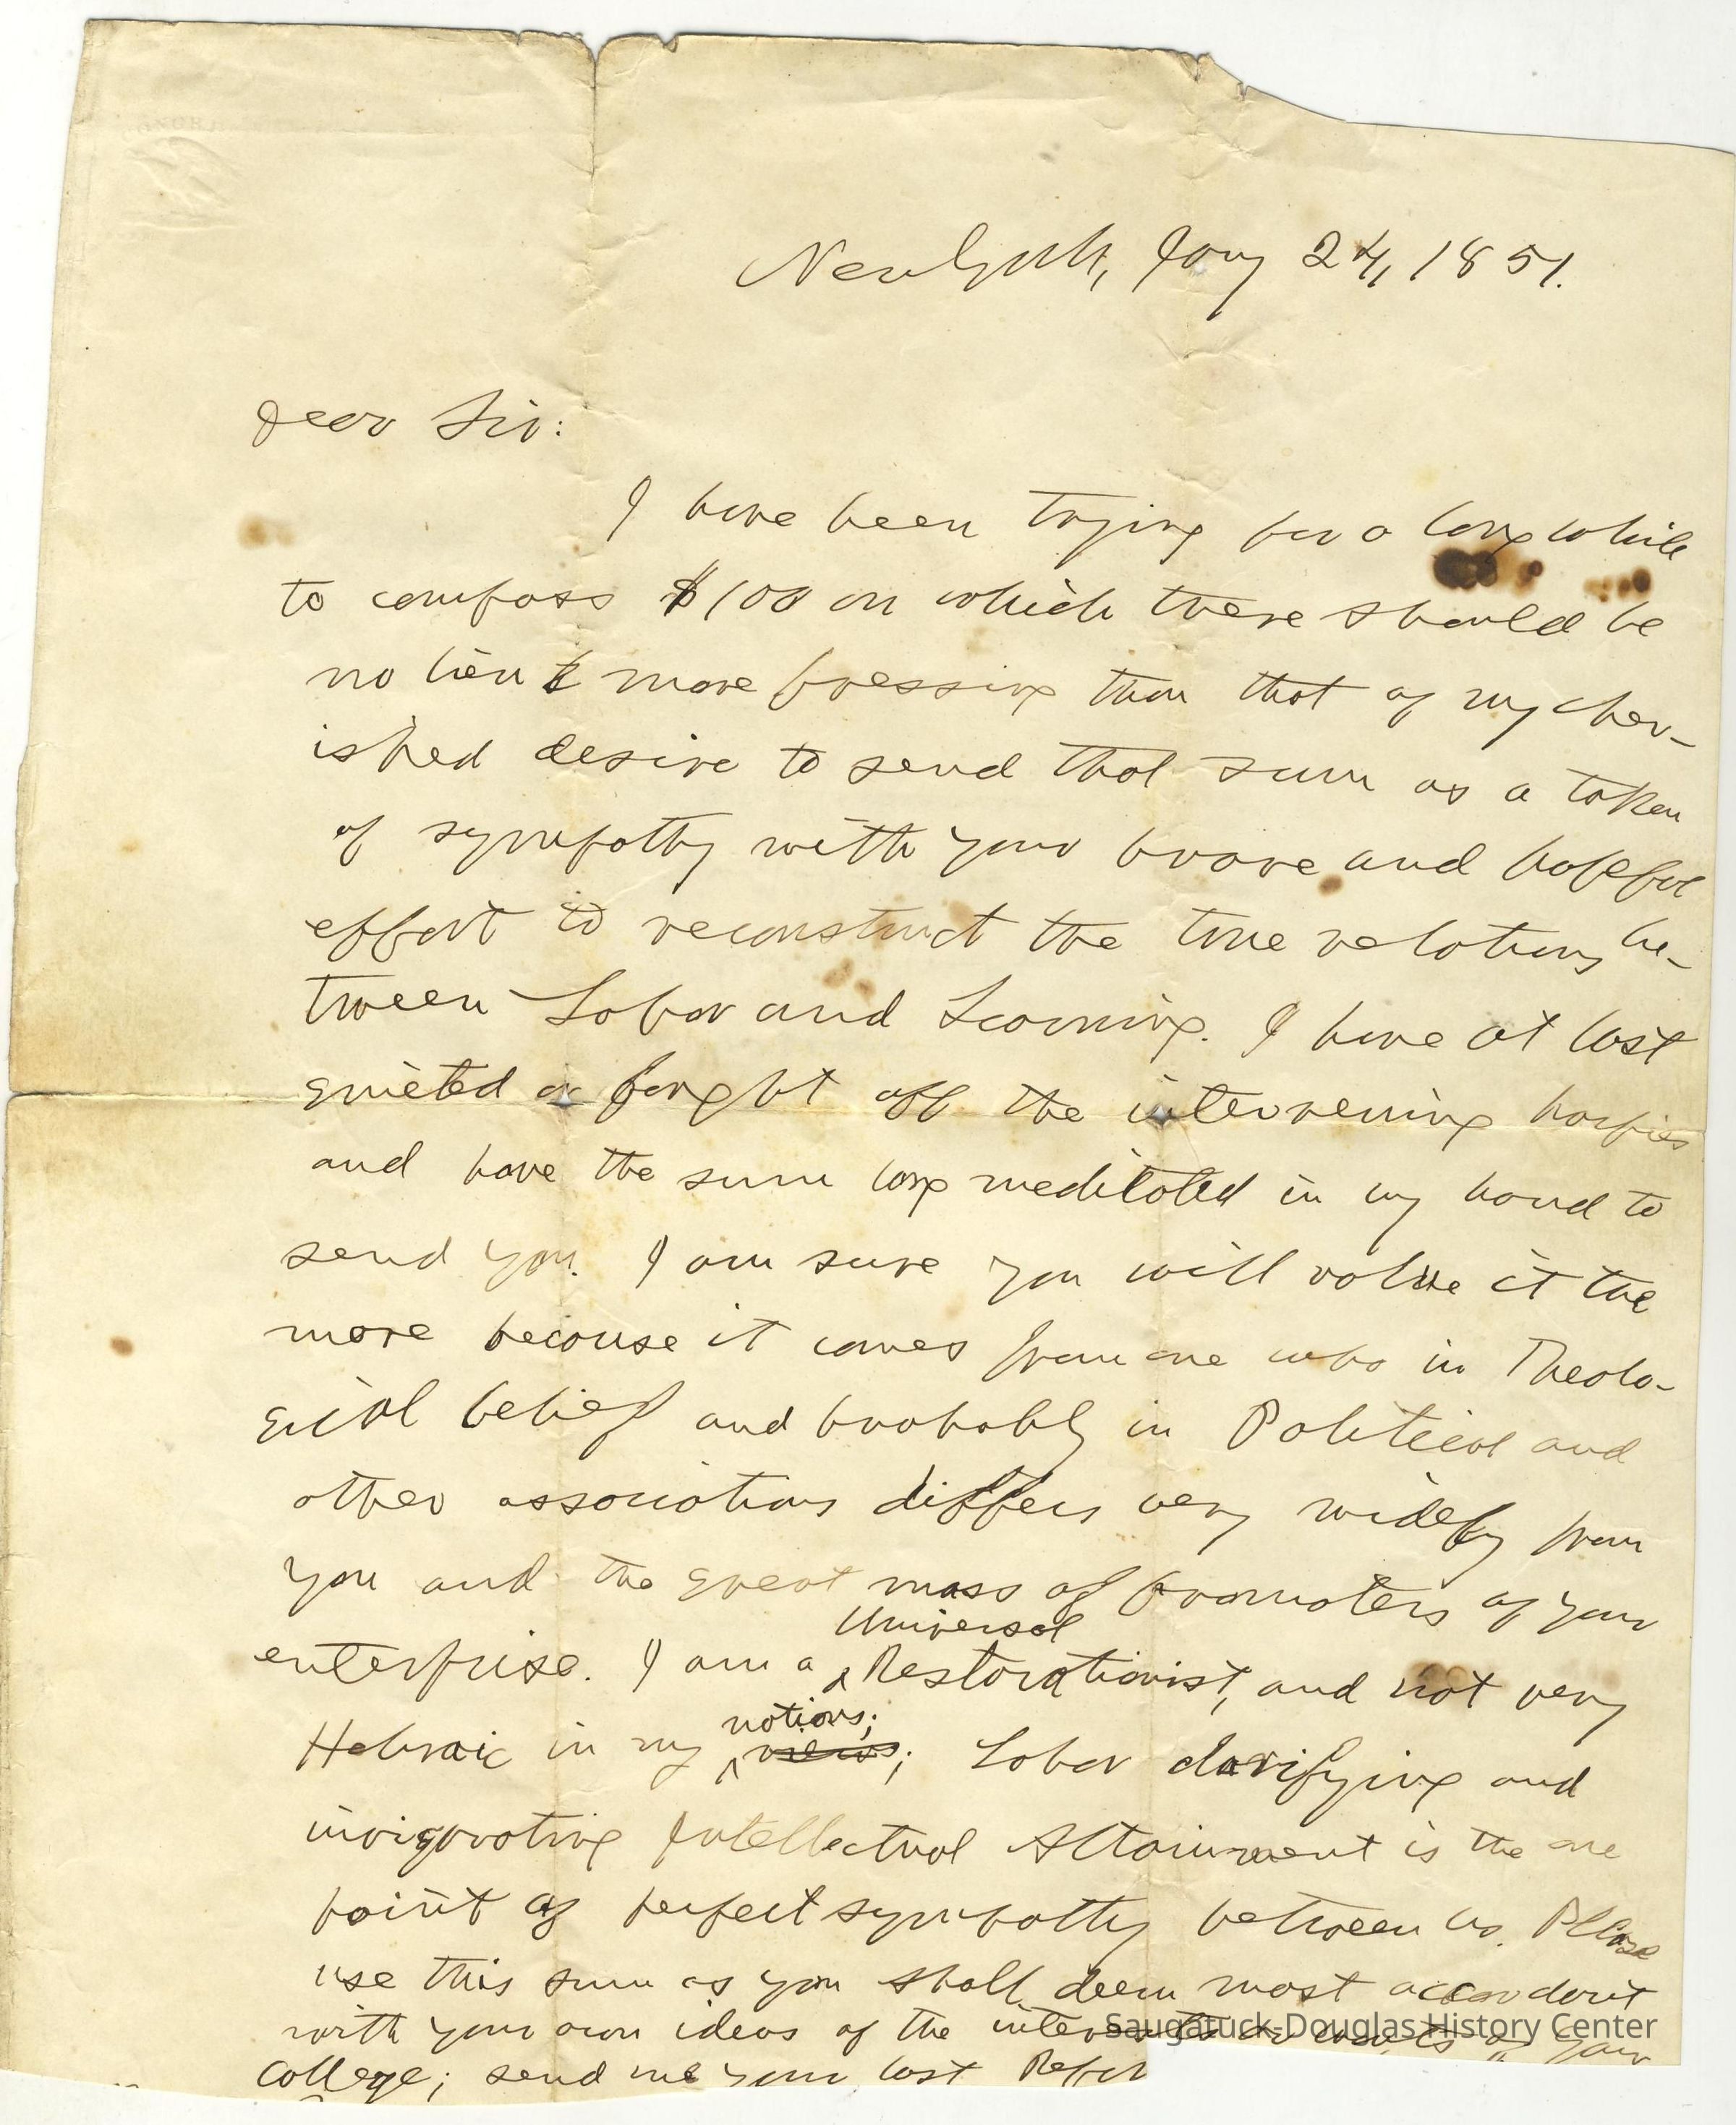 New York, Jany 24, 1851.
Dear Sir:
I have been trying for a long while
to compass $100 on which there should be
no lien more pressing than that of my cher-
ished desire to send that sum as a token
of sympathy with your brave and hopeful
effort to reconstruct the true relations be-
tween Labor and Learning. I have at last
quieted or fought off the intervening harpies
and have the sum long meditated in my hand to
send you. I am sure you will value it the
more because it comes from one who in Theolo-
gical belief and probably in Political and
other associations differs very widely from
you and the great mass of promoters of your
Universal
enterprise. I am a ‸ Restorationist, and not very
notions;
Hebraic in my ‸ views; Labor clarifying and
invigorating Intellectual Attainment is the one
point of perfect sympathy between us. Please
use this sum as you shall deem most accordant
with your own ideas of the interests or wants of your
College; send me your last Repor
Saugatuck-Douglas History Center